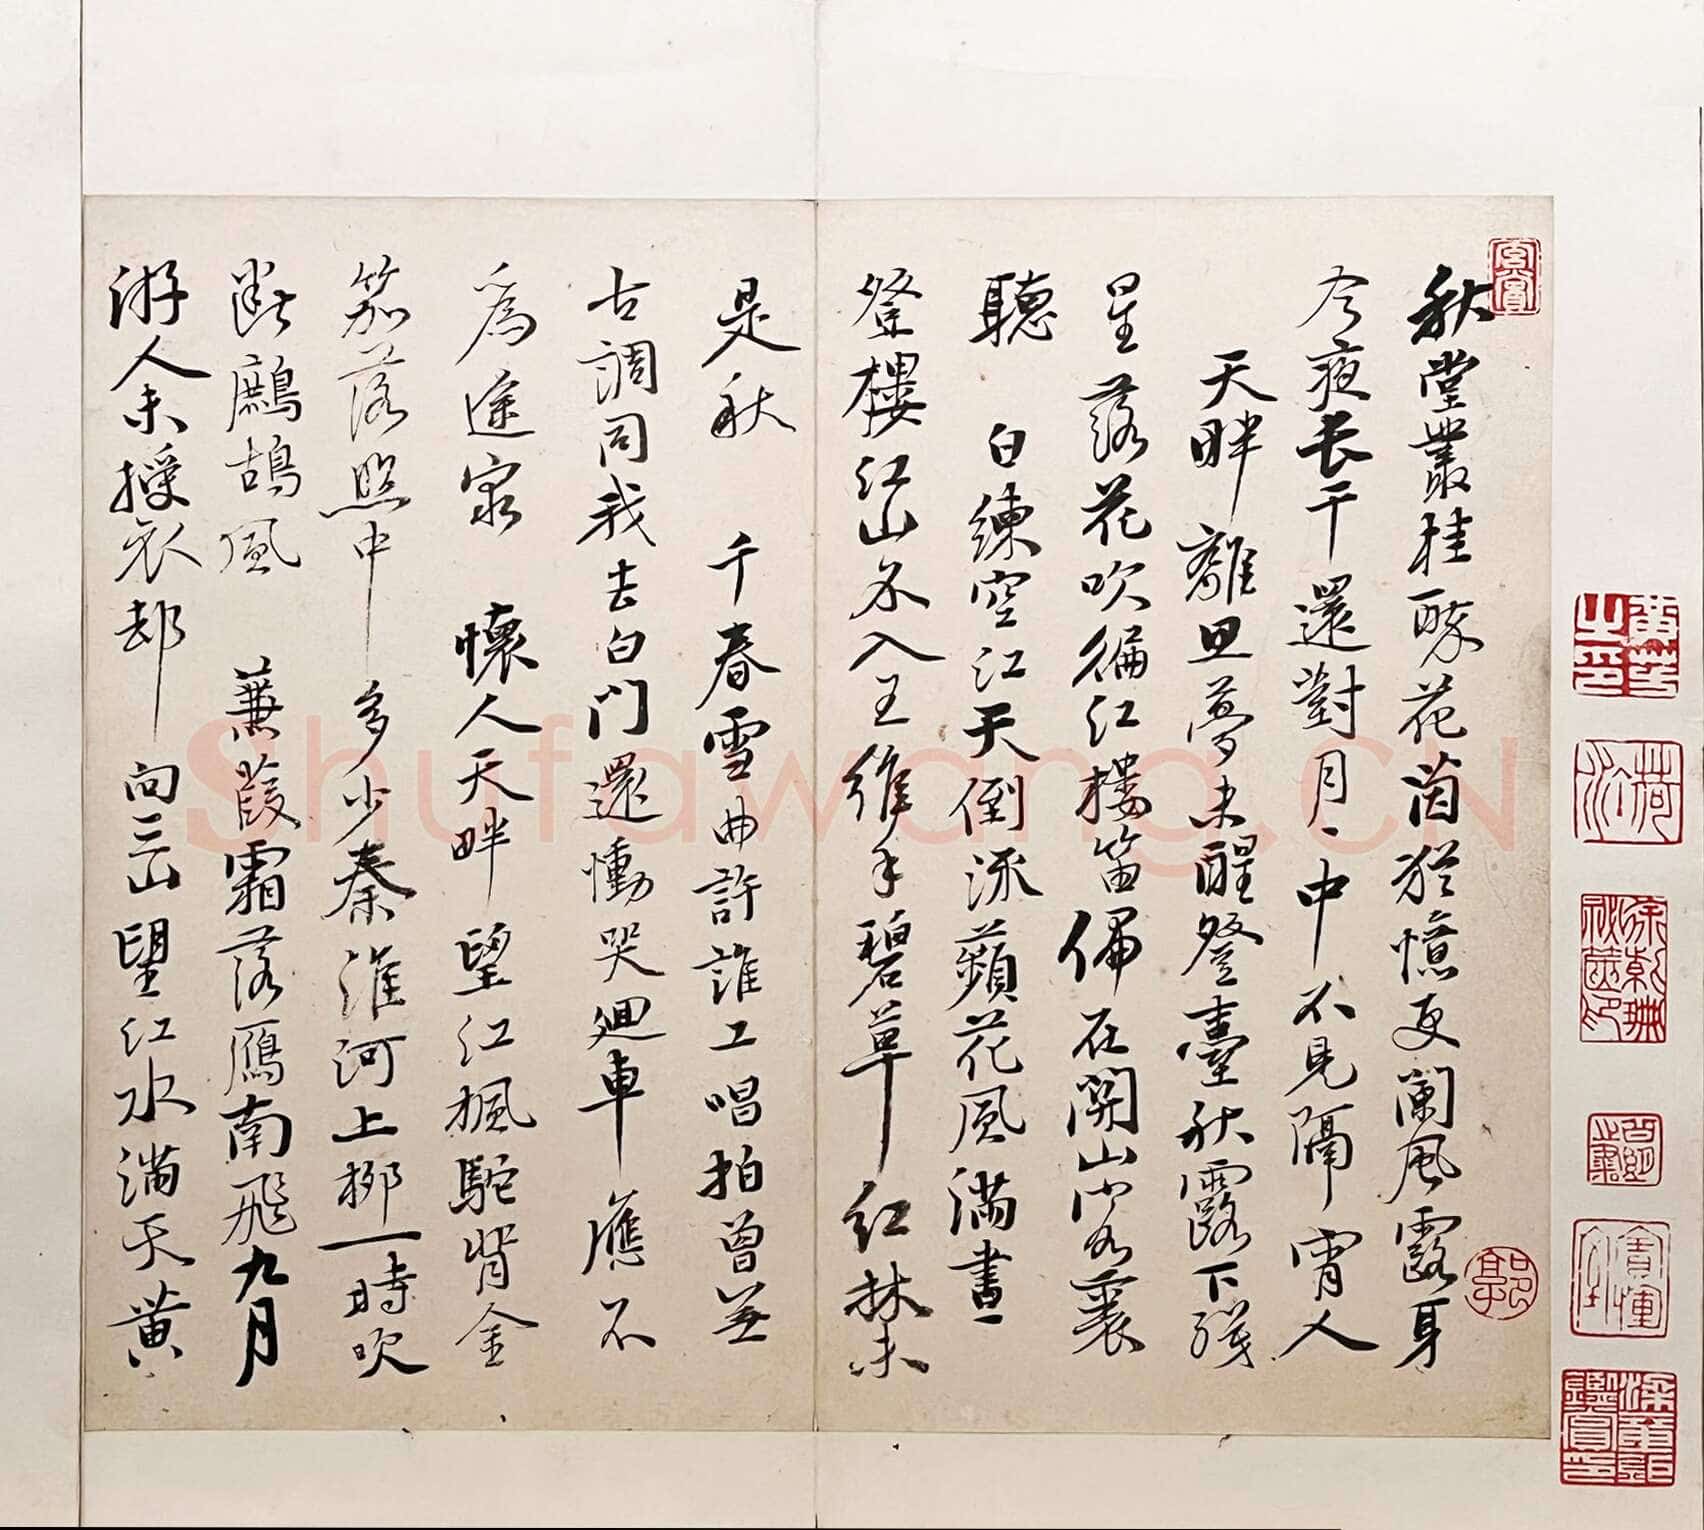 秋堂叢桂酸花茵猶憶更闌風露身
今夜長干還對月月中不見隔宵人
天畔離思夢未醒登臺秋露下殘
星落花吹徧江樓笛偏在關山客裏
聽 白練空江天倒流蘋花風滿畫
登樓江山不入王維手碧草紅林未
是秋 千春雪曲許誰工唱拍曾無
古調同我去白門還慟哭迴車應不
為途窮 懷人天畔望江楓駝背金
笳落照中多少秦淮河上柳一時吹
斷鷓鴣風 蒹葭霜落雁南飛九月
游人未授衣却向三山望江水滿天黃
Shufawang.CN